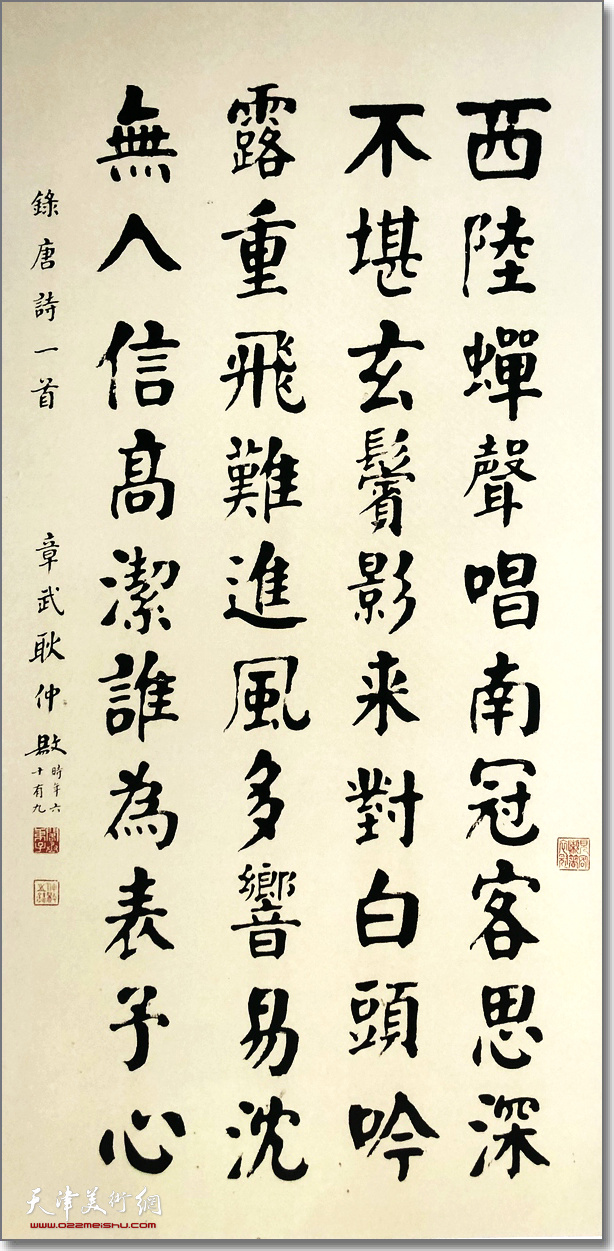 西陸蟬聲唱南冠客思深
不堪玄鬢影来對白頭吟
露重飛難進風多響易沈
無人信高潔誰為表予心
錄唐詩一首
章武耿仲敭時年六十有九
天津美術網
www.022meishu.com